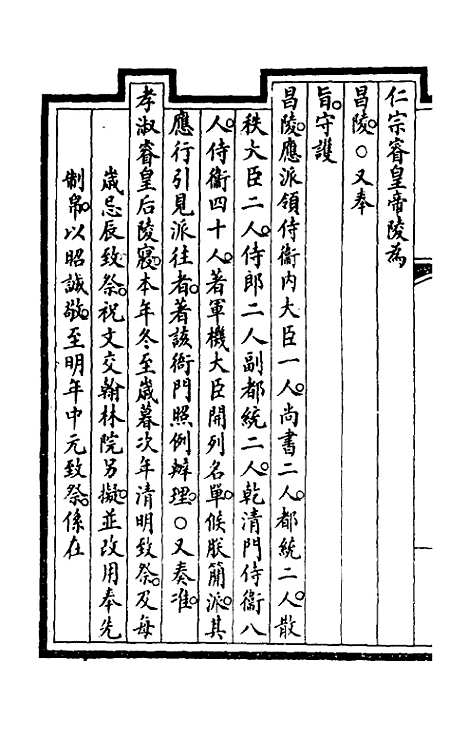 仁宗睿皇帝陵爲
昌陵。○又奉
旨。守護
昌陵。應派領侍衞內大臣一人。尚書二人。都統二人。散
秩大臣二人。侍郎二人副都統二人。乾清門侍衞八
人。侍衞四十人。著軍機大臣開列名單候朕簡派。其
應行引見派往者。著該衙門照例辦理。○又奏准。
孝淑睿皇后陵寢。本年冬至歲暮次年清明致祭。及每
歲忌辰致祭。祝文交翰林院另擬。並改用奉先
制帛。以昭誠敬。至明年中元致祭。係在